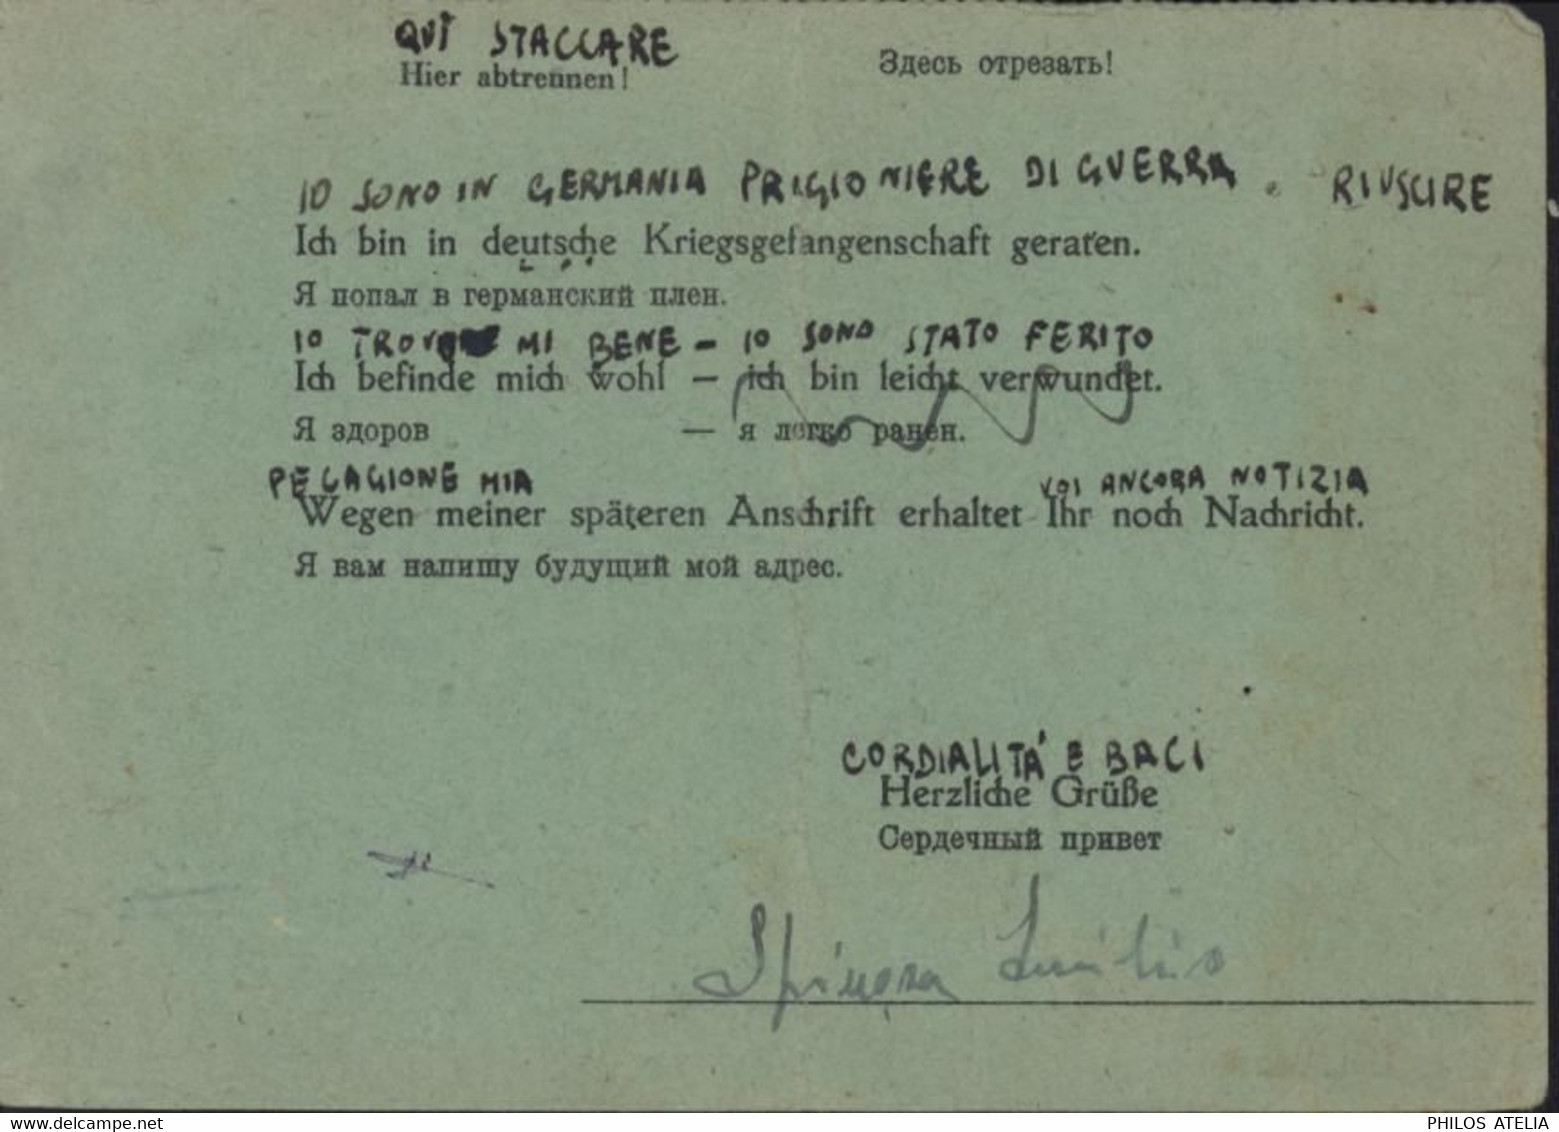 QUI STACCARE
Hier abtrennen! Здесь отрезать!
IO SONO IN GERMANIA PRIGIONIERE DI GUERRA. RIUSCIRE
Ich bin in deutsche Kriegsgefangenschaft geraten.
Я попал в германский плен.
IO MI BENE – IO SONO STATO FERITO
Ich befinde mich wohl — ich bin leicht verwundet.
Я здоров — я легко ранен.
PE CAGIONE MIA VOI ANCORA NOTIZIA
Wegen meiner späteren Anschrift erhaltet Ihr noch Nachricht.
Я вам напишу будущий мой адрес.
CORDIALITÁ E BACI
Herzliche Grüße
Сердечный привет
PHILOS ATELIA